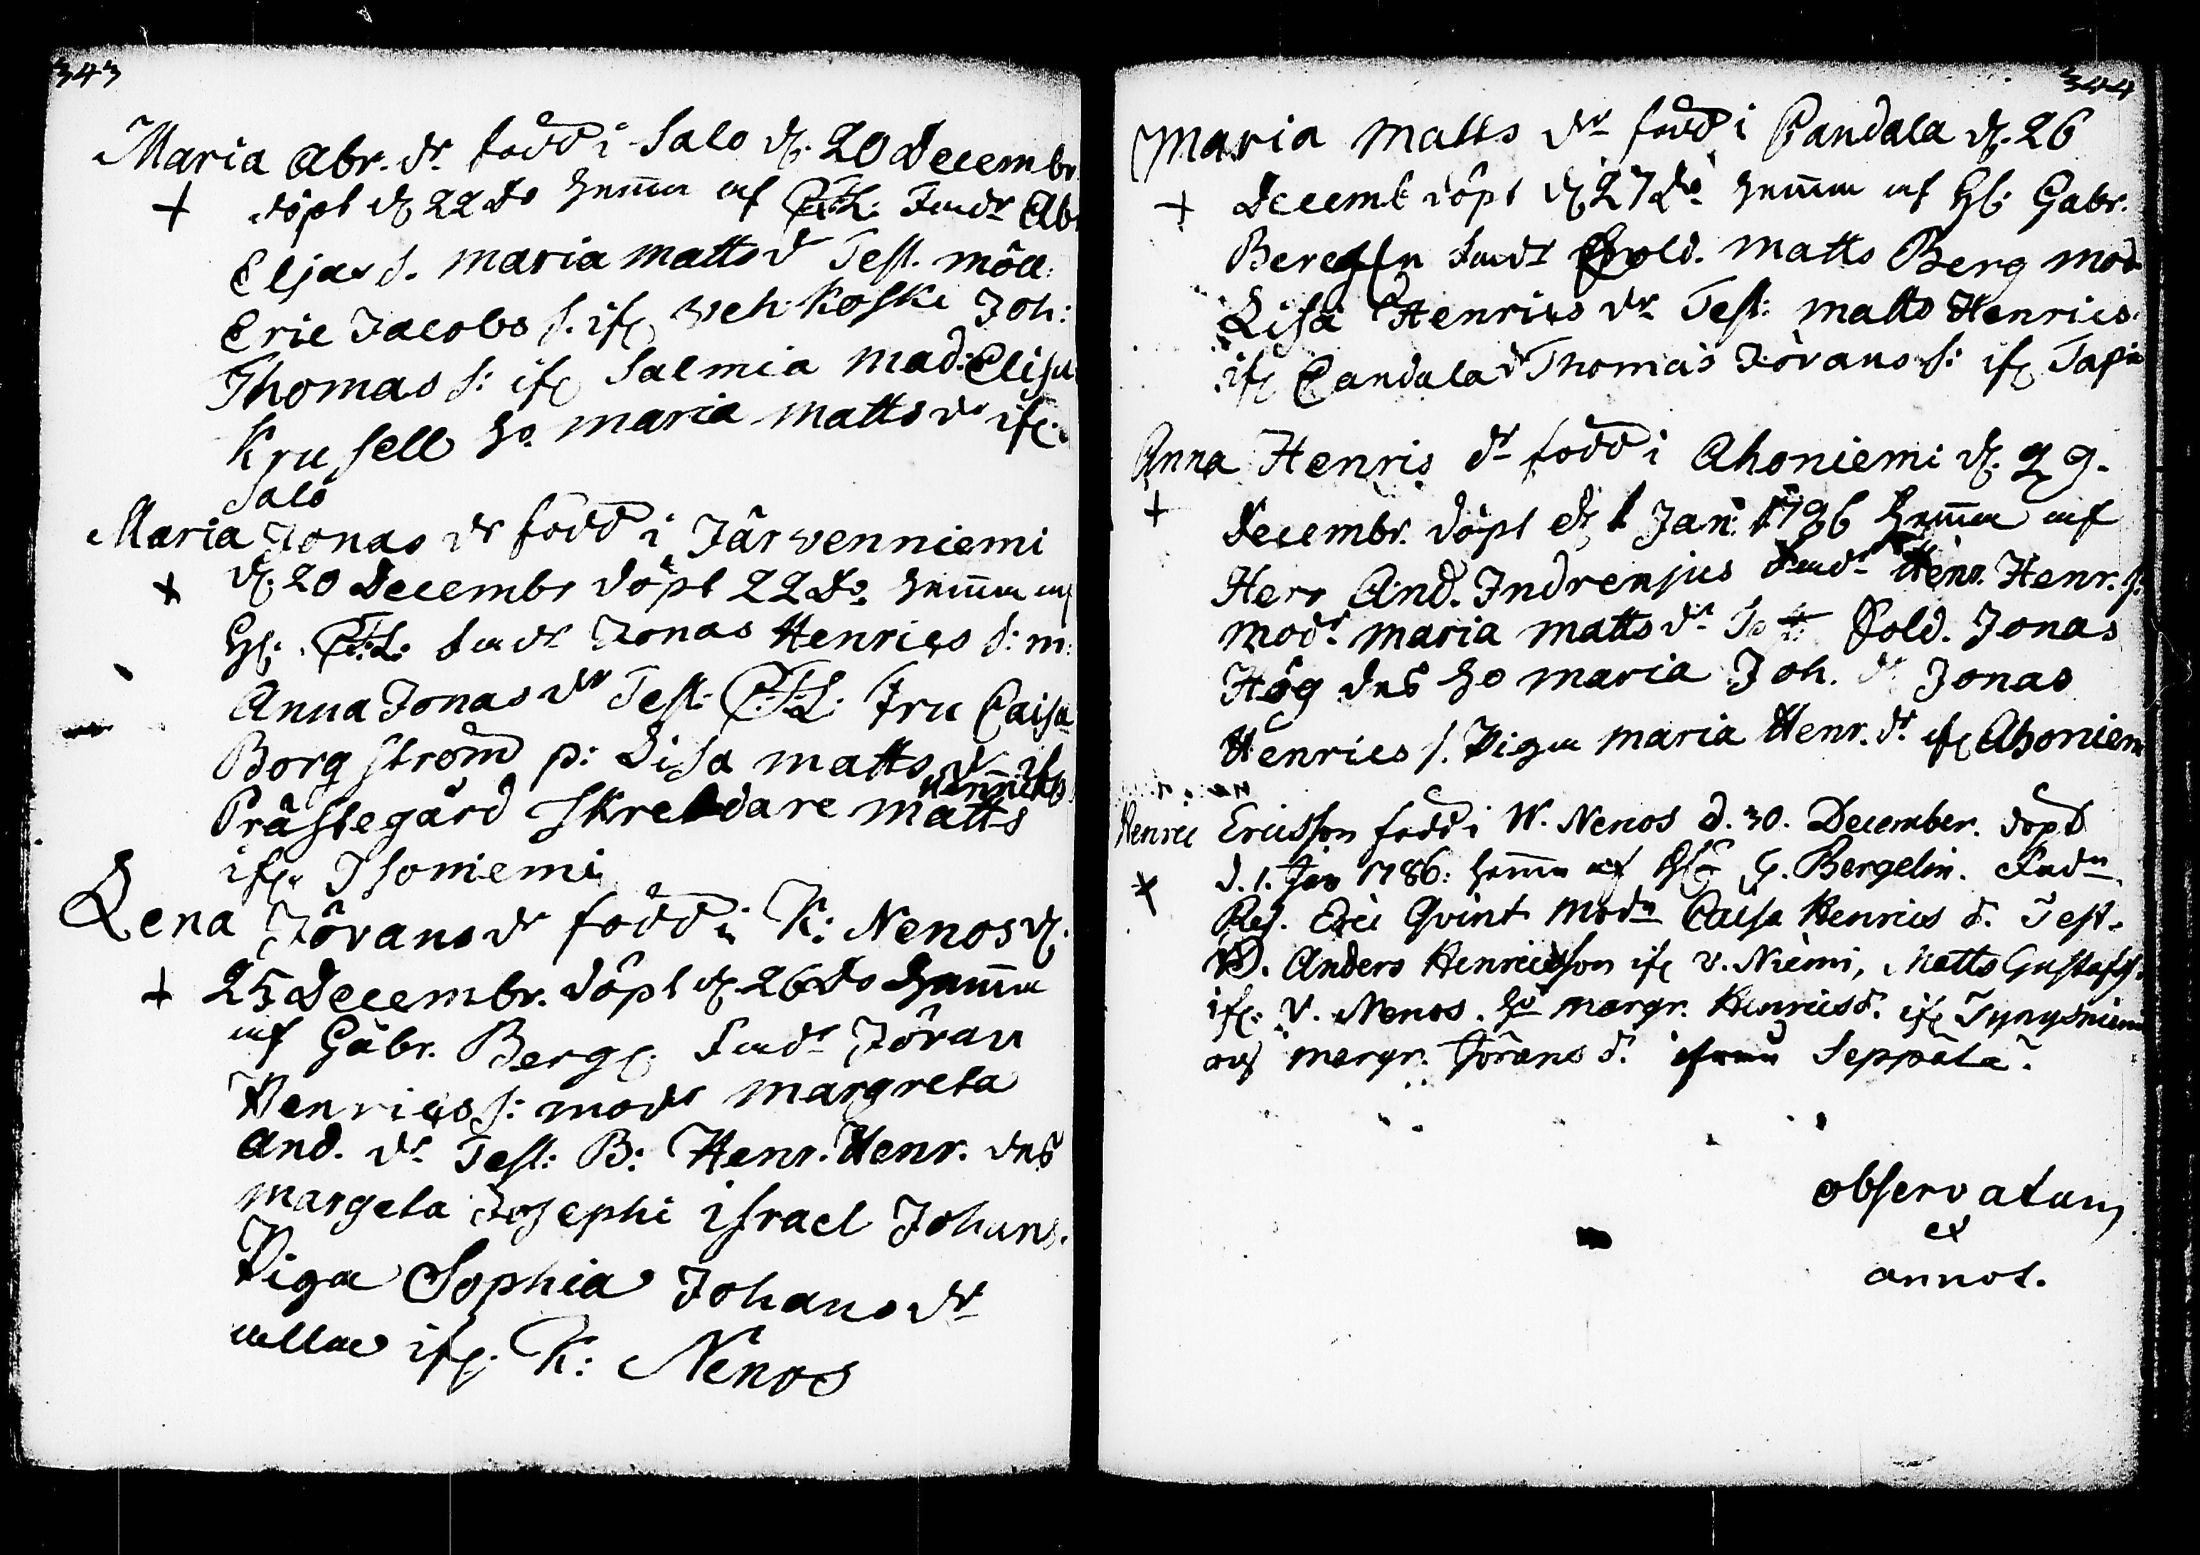 343
Maria Abr. dr född i Salo d. 20 Decembr
+ döpt d 22 do hemma af C.F.L. Fadr Abr
Eljas s. Maria Matts dr Test. Möll.
Eric Jacobs s. ifr Vehkoski Joh:
Thomas s: ifr Salmia Mad: Elisa
Krusell ho Maria Matts dr ifr
Salo
Maria Jonas dr född i Järvenniemi
+ d. 20 Decembr döpt 22 do hemma af
H: C.F.L. Fadr Jonas Henrics s: m:
Anna Jonas dr Test: C.F.L: fru Caisa
Borgström p: Lisa Matts dr if
Prästegård Skreddare Matts Henricks
ifr Isoniemi
Lena Jörans dr född i K: Nenos d.
+ 25 Decembr. döpt d 26 do hemma
af Gabr. Berg. Fadr Jöran
Henrics s: modr Margreta
And. dr Test: B: Henr. Henr. des
Margeta Josephi Israel Johans.
Piga Sophia Johans dr
alla ifr. K: Nenos
344
Maria Matts dr född i Pandala d. 26
+ Decemb döpt d 27 do hemma af H: Gabr.
Beregeln Fadr Sold. Matts Berg mod
Lisa Henrics dr Test: Matts Henrics
ifr Pandala Thomas Jörans s: ifr Tapia
Anna Henris dr född i Ahoniemi d. 29.
+ Decembr. döpt d 1 Jan: 1786 hemma af
Herr And. Indrenjus Fadr Henr. Henr. s.
modr Maria Matts dr Test: Sold. Jonas
Hög des ho Maria Joh. dr Jonas
Henrics s. Piga Maria Henr. dr ifr Ahoniem
Henric Ericsson född i W. Nenos d. 30. December. döpt
+ d. 1. Jan 1786: hemma af G. Bergelin. Fadn
Eric Qvint Modn Caisa Henrics d. Test.
B. Anders Henricsson ifr v. Niemi, Matts Gustafs s.
ifr. V. Nenos. ho Margr. Henrics d. ifr Tynysniemi
och Margr. Jörans d. Seppälä.
observatum
et
annot.